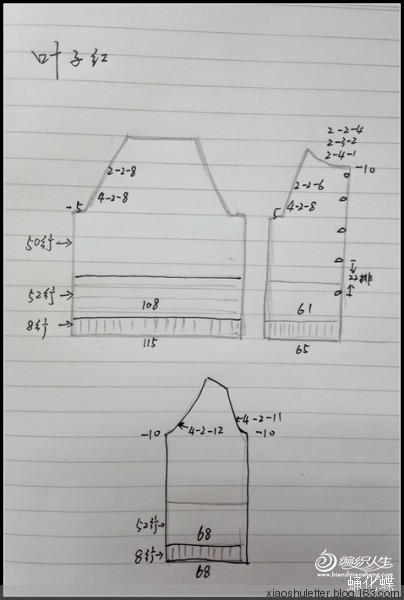 叶子红
2-2-4
2-3-2
2-4-1
-10
2-2-8
4-2-8
-5
2-2-6
4-2-8
5
50行→
52行→
8行→
108
115
22排
61
65
-10
4-2-12
4-2-11
-10
52行→
8行→
68
68
编织人生
www.bianzhirensheng.com
蛹化蝶
xiaoshuletter.blog.163.com